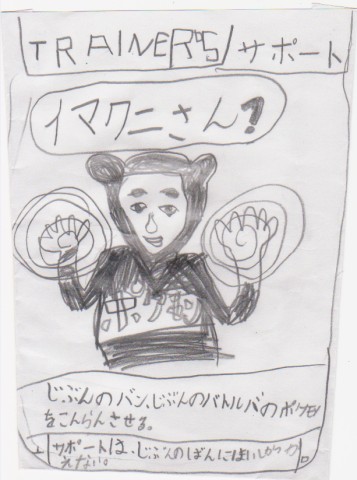 TRAINER'S サポート
イマクニさん?
じぶんのバン、じぶんのバトルバのポケモン
をこんらんさせる。
サポートは、じぶんのばんに
えない。